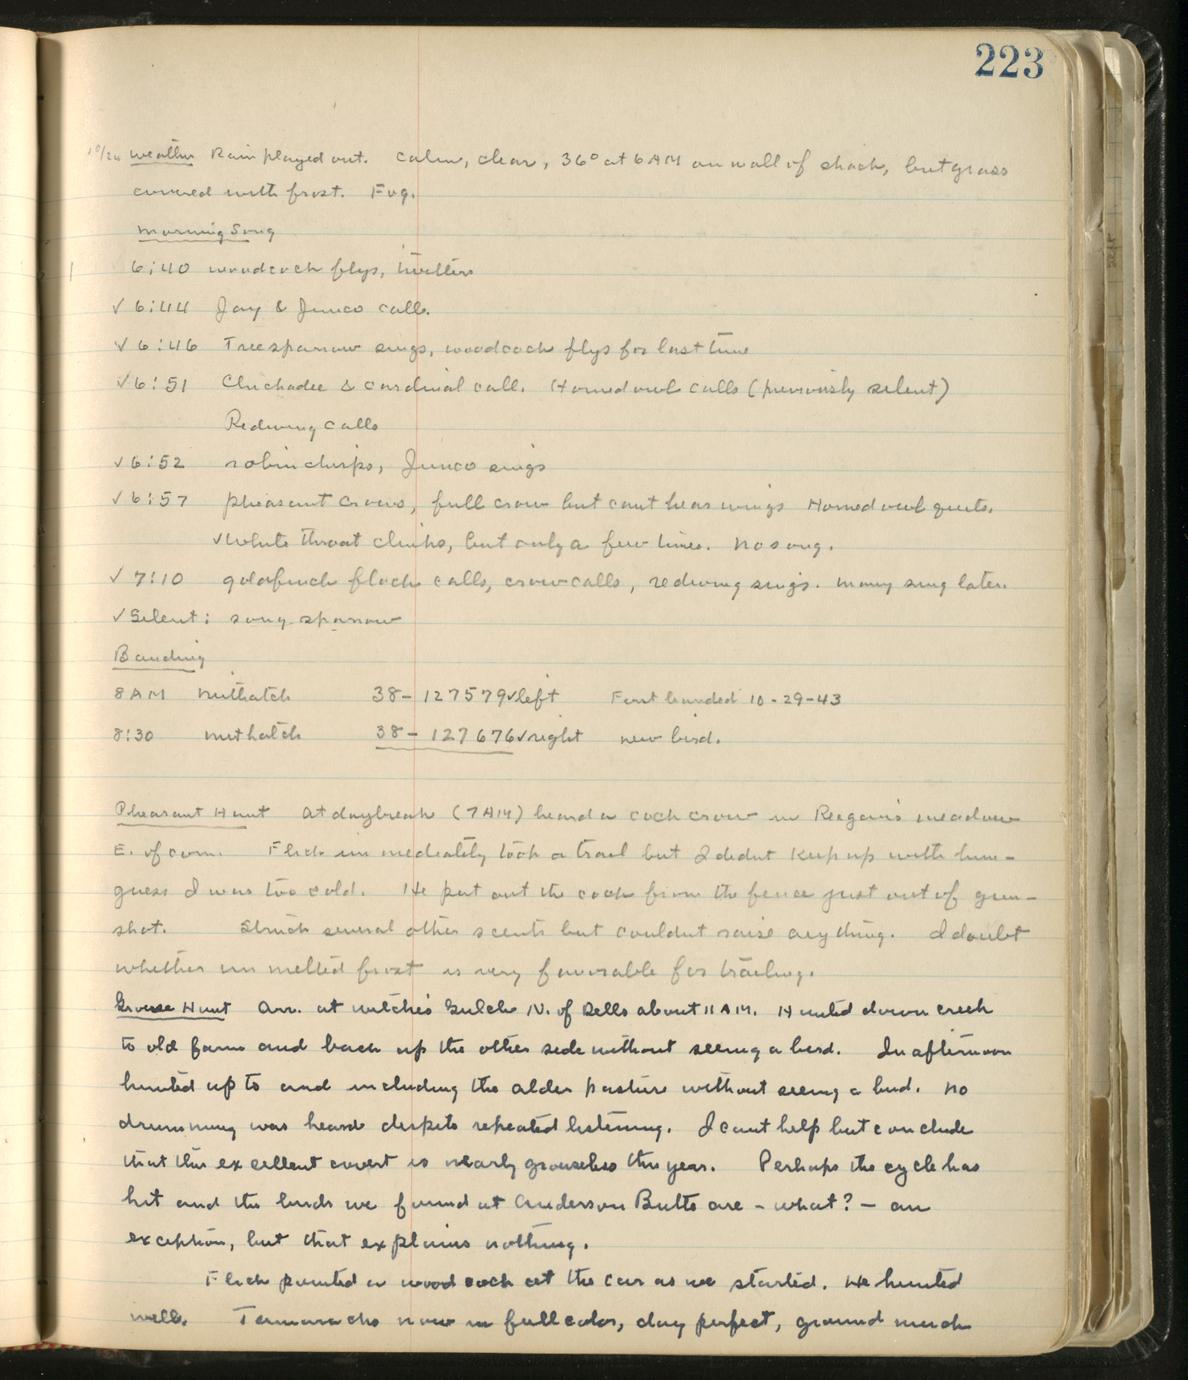 223
10/24 Weather Rain played out. Calm, clear, 36° at 6 AM on wall of shack, but grass
covered with frost. Fog.
Morning Song
6:40 woodcock flys, twitters
✓ 6:44 Jay & Junco call.
✓ 6:46 Treesparrow sings, woodcock flys for last time
✓ 6:51 Chickadee & cardinal call. Horned owl calls (previously silent)
Redwing calls
✓ 6:52 robin chirps, Junco sings
✓ 6:57 pheasant crows, full crow but cant hear wings Horned owl quits.
✓ White throat clinks, but only a few times. No song.
✓ 7:10 goldfinch flock calls, crow calls, redwing sings. Many sing later.
✓ Silent: song sparrow
Banding
8 AM nuthatch 38-127579 ✓ left First banded 10-29-43
8:30 nuthatch 38-127676 ✓ right new bird.
Pheasant Hunt At daybreak (7 AM) heard a cock crow in Reagan's meadow
E. of corn. Flick immediately took a trail but I didnt keep up with him -
guess I was too cold. He put out the cock from the fence just out of gun-
shot. Struck several other scents but couldnt raise anything. I doubt
whether unmelted frost is very favorable for trailing.
Grouse Hunt Arr. at witches Gulch N. of Dells about 11 AM. Hunted down creek
to old farm and back up the other side without seeing a bird. In afternoon
hunted up to and including the alder pasture without seeing a bird. No
drumming was heard despite repeated listening. I cant help but conclude
that this excellent covert is nearly grouseless this year. Perhaps the cycle has
hit and the birds we found at Anderson Butts are - what? - an
exception, but that explains nothing.
Flick pointed a woodcock at the car as we started. He hunted
well. Tamaracks now in full color, day perfect, ground much